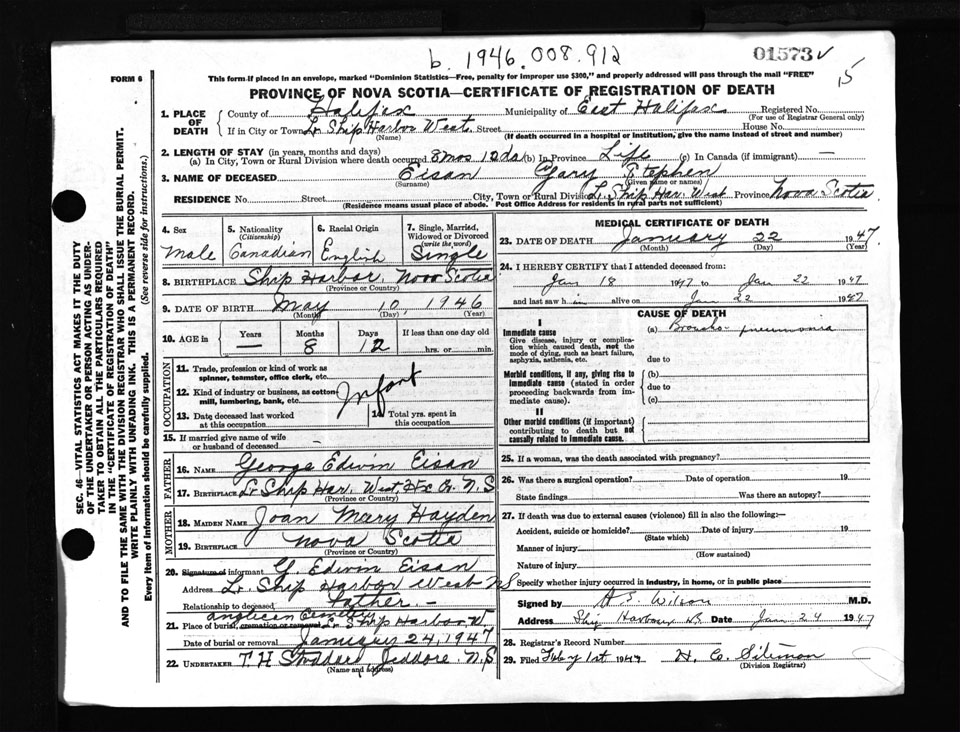 b. 1946.008.912
01573 ✓
15
FORM 6
This form if placed in an envelope, marked "Dominion Statistics—Free, penalty for improper use $300," and properly addressed will pass through the mail "FREE"
PROVINCE OF NOVA SCOTIA—CERTIFICATE OF REGISTRATION OF DEATH
1. PLACE OF DEATH
County of Halifax Municipality of East Halifax Registered No.
(For use of Registrar General only)
If in City or Town Lr Ship Harbor West Street House No.
(Name) (If death occurred in a hospital or institution, give the name instead of street and number)
2. LENGTH OF STAY (in years, months and days)
(a) In City, Town or Rural Division where death occurred 8 mos 12 da (b) In Province Life (c) In Canada (if immigrant) —
3. NAME OF DECEASED Eisan Gary Stephen
(Surname) (Given name or names)
RESIDENCE No. Street City, Town or Rural Division L. Ship Har. West Province Nova Scotia
(Residence means usual place of abode. Post Office Address for residents in rural parts not sufficient)
4. Sex
Male
5. Nationality
(Citizenship)
Canadian
6. Racial Origin
English
7. Single, Married,
Widowed or Divorced
(write the word)
Single
8. BIRTHPLACE Ship Harbor, Nova Scotia
(Province or Country)
9. DATE OF BIRTH May 10, 1946
(Month) (Day) (Year)
10. AGE in
Years Months Days If less than one day old
— 8 12 hrs. or min.
OCCUPATION
11. Trade, profession or kind of work as
spinner, teamster, office clerk, etc.
12. Kind of industry or business, as cotton-
mill, lumbering, bank, etc.
Infant
13. Date deceased last worked
at this occupation
14. Total yrs. spent in
this occupation
15. If married give name of wife
or husband of deceased —
FATHER
16. NAME George Edwin Eisan
17. BIRTHPLACE Lr Ship Har. West Hx Co. N.S
(Province or Country)
MOTHER
18. MAIDEN NAME Joan Mary Hayden
19. BIRTHPLACE Nova Scotia
(Province or Country)
20. Signature of informant G. Edwin Eisan
Address Lr. Ship Harbor West NS
Relationship to deceased Father —
Anglican Cemetery
21. Place of burial, cremation or removal Lr Ship Harbor W.
Date of burial or removal January 24, 1947
22. UNDERTAKER T. H Stoddard Jeddore. N.S
(Name and address)
MEDICAL CERTIFICATE OF DEATH
23. DATE OF DEATH January 22 1947
(Month) (Day) (Year)
24. I HEREBY CERTIFY that I attended deceased from:
Jan 18 1947 to Jan 22 1947
and last saw h im alive on Jan 22 1947
CAUSE OF DEATH
I
Immediate cause
Give disease, injury or complica-
tion which caused death, not the
mode of dying, such as heart failure,
asphyxia, asthenia, etc.
(a) Broncho-pneumonia
due to
Morbid conditions, if any, giving rise to
immediate cause (stated in order
proceeding backwards from im-
mediate cause).
(b)
due to
(c)
II
Other morbid conditions (if important)
contributing to death but not
causally related to immediate cause.
25. If a woman, was the death associated with pregnancy?
26. Was there a surgical operation? Date of operation 19
State findings Was there an autopsy?
27. If death was due to external causes (violence) fill in also the following:—
Accident, suicide or homicide? Date of injury 19
(State which)
Manner of injury
(How sustained)
Nature of injury
Specify whether injury occurred in industry, in home, or in public place
Signed by A S. Wilson M.D.
Address Ship Harbour NS. Date Jan 24 1947
28. Registrar's Record Number
29. Filed Feby 1st 1947 H. C.
(Division Registrar)
SEC. 46—VITAL STATISTICS ACT MAKES IT THE DUTY
OF THE UNDERTAKER OR PERSON ACTING AS UNDER-
TAKER TO OBTAIN ALL THE PARTICULARS REQUIRED
IN THE "CERTIFICATE OF REGISTRATION OF DEATH"
AND TO FILE THE SAME WITH THE DIVISION REGISTRAR WHO SHALL ISSUE THE BURIAL PERMIT.
WRITE PLAINLY WITH UNFADING INK. THIS IS A PERMANENT RECORD.
Every item of information should be carefully supplied. (See reverse side for instructions.)